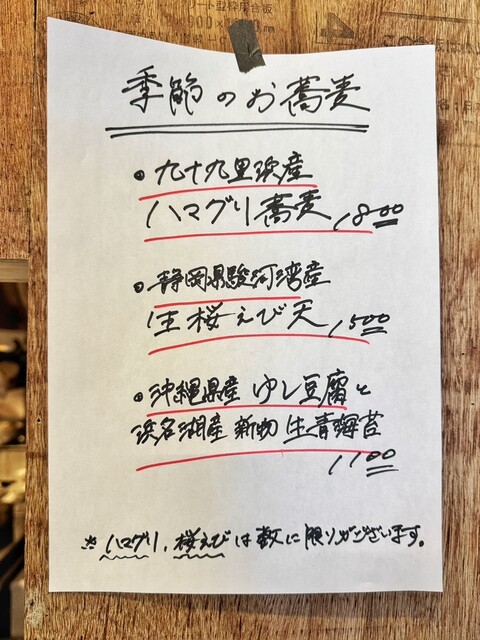 季節のお蕎麦
・九十九里浜産
ハマグリ蕎麦 1800
・静岡県駿河湾産
生桜えび天 1500
・沖縄県産 ゆし豆腐と
浜名湖産 新物 生青海苔
1100
※ハマグリ、桜えびは数に限りがございます。